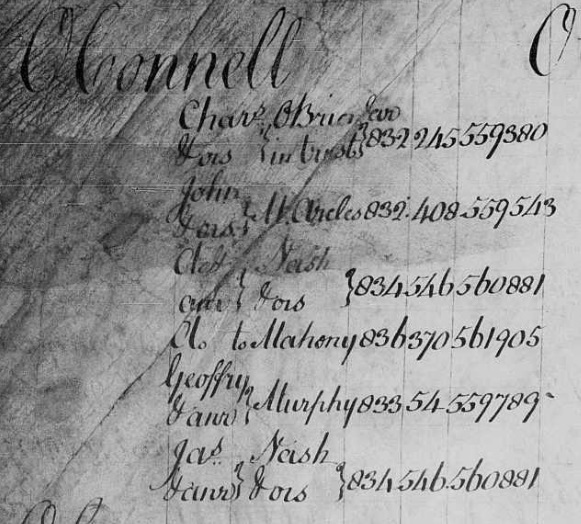 O'Connell O
Chars. O'Brien &anr
&ors in trust 832 245 559380
John
&ors Mt. Arcles 832 408 559543
Nash
&anr &ors 834 546 560881
Do to Mahony 836 370 561905
Geoffry
&anr Murphy 833 54 559789
Jas. Nash
&anr &ors 834 546 560881